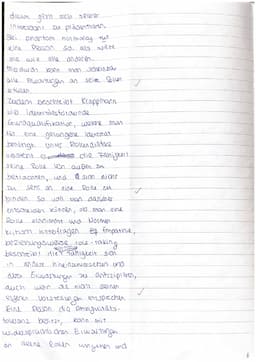 dieser gern sich seiner
interessant zu präsentieren.
Bei phantom normalcy tut
eine Person so als wäre
sie wie alle anderen.
Dadurch kann man scheinbar
alle Erwartungen an seine Rolle
erfüllen.
Zudem beschreibt Krappmann
vier identitätsfördernde
Grundqualifikationen, welche man
für eine gelungene Identität
benötigt. Unter Rollendistanz
versteht er die Fähigkeit
seine Rolle von außen zu
betrachten, und sich nicht
zu sehr an eine Rolle zu
binden. So soll man darüber
entscheiden können, ob man eine
Rolle einnimmt und Normen
kritisch hinterfragen. Empathie,
beziehungsweise role-taking
beschreibt die Fähigkeit sich
in andere hineinzuversetzen und
deren Erwartungen zu antizipieren,
auch wenn sie nicht seinen
eigenen Vorstellungen entsprechen.
Eine Person die Ambiguitäts-
toleranz besitzt, kann mit
widersprüchlichen Erwartungen
an seine Rollen umgehen und